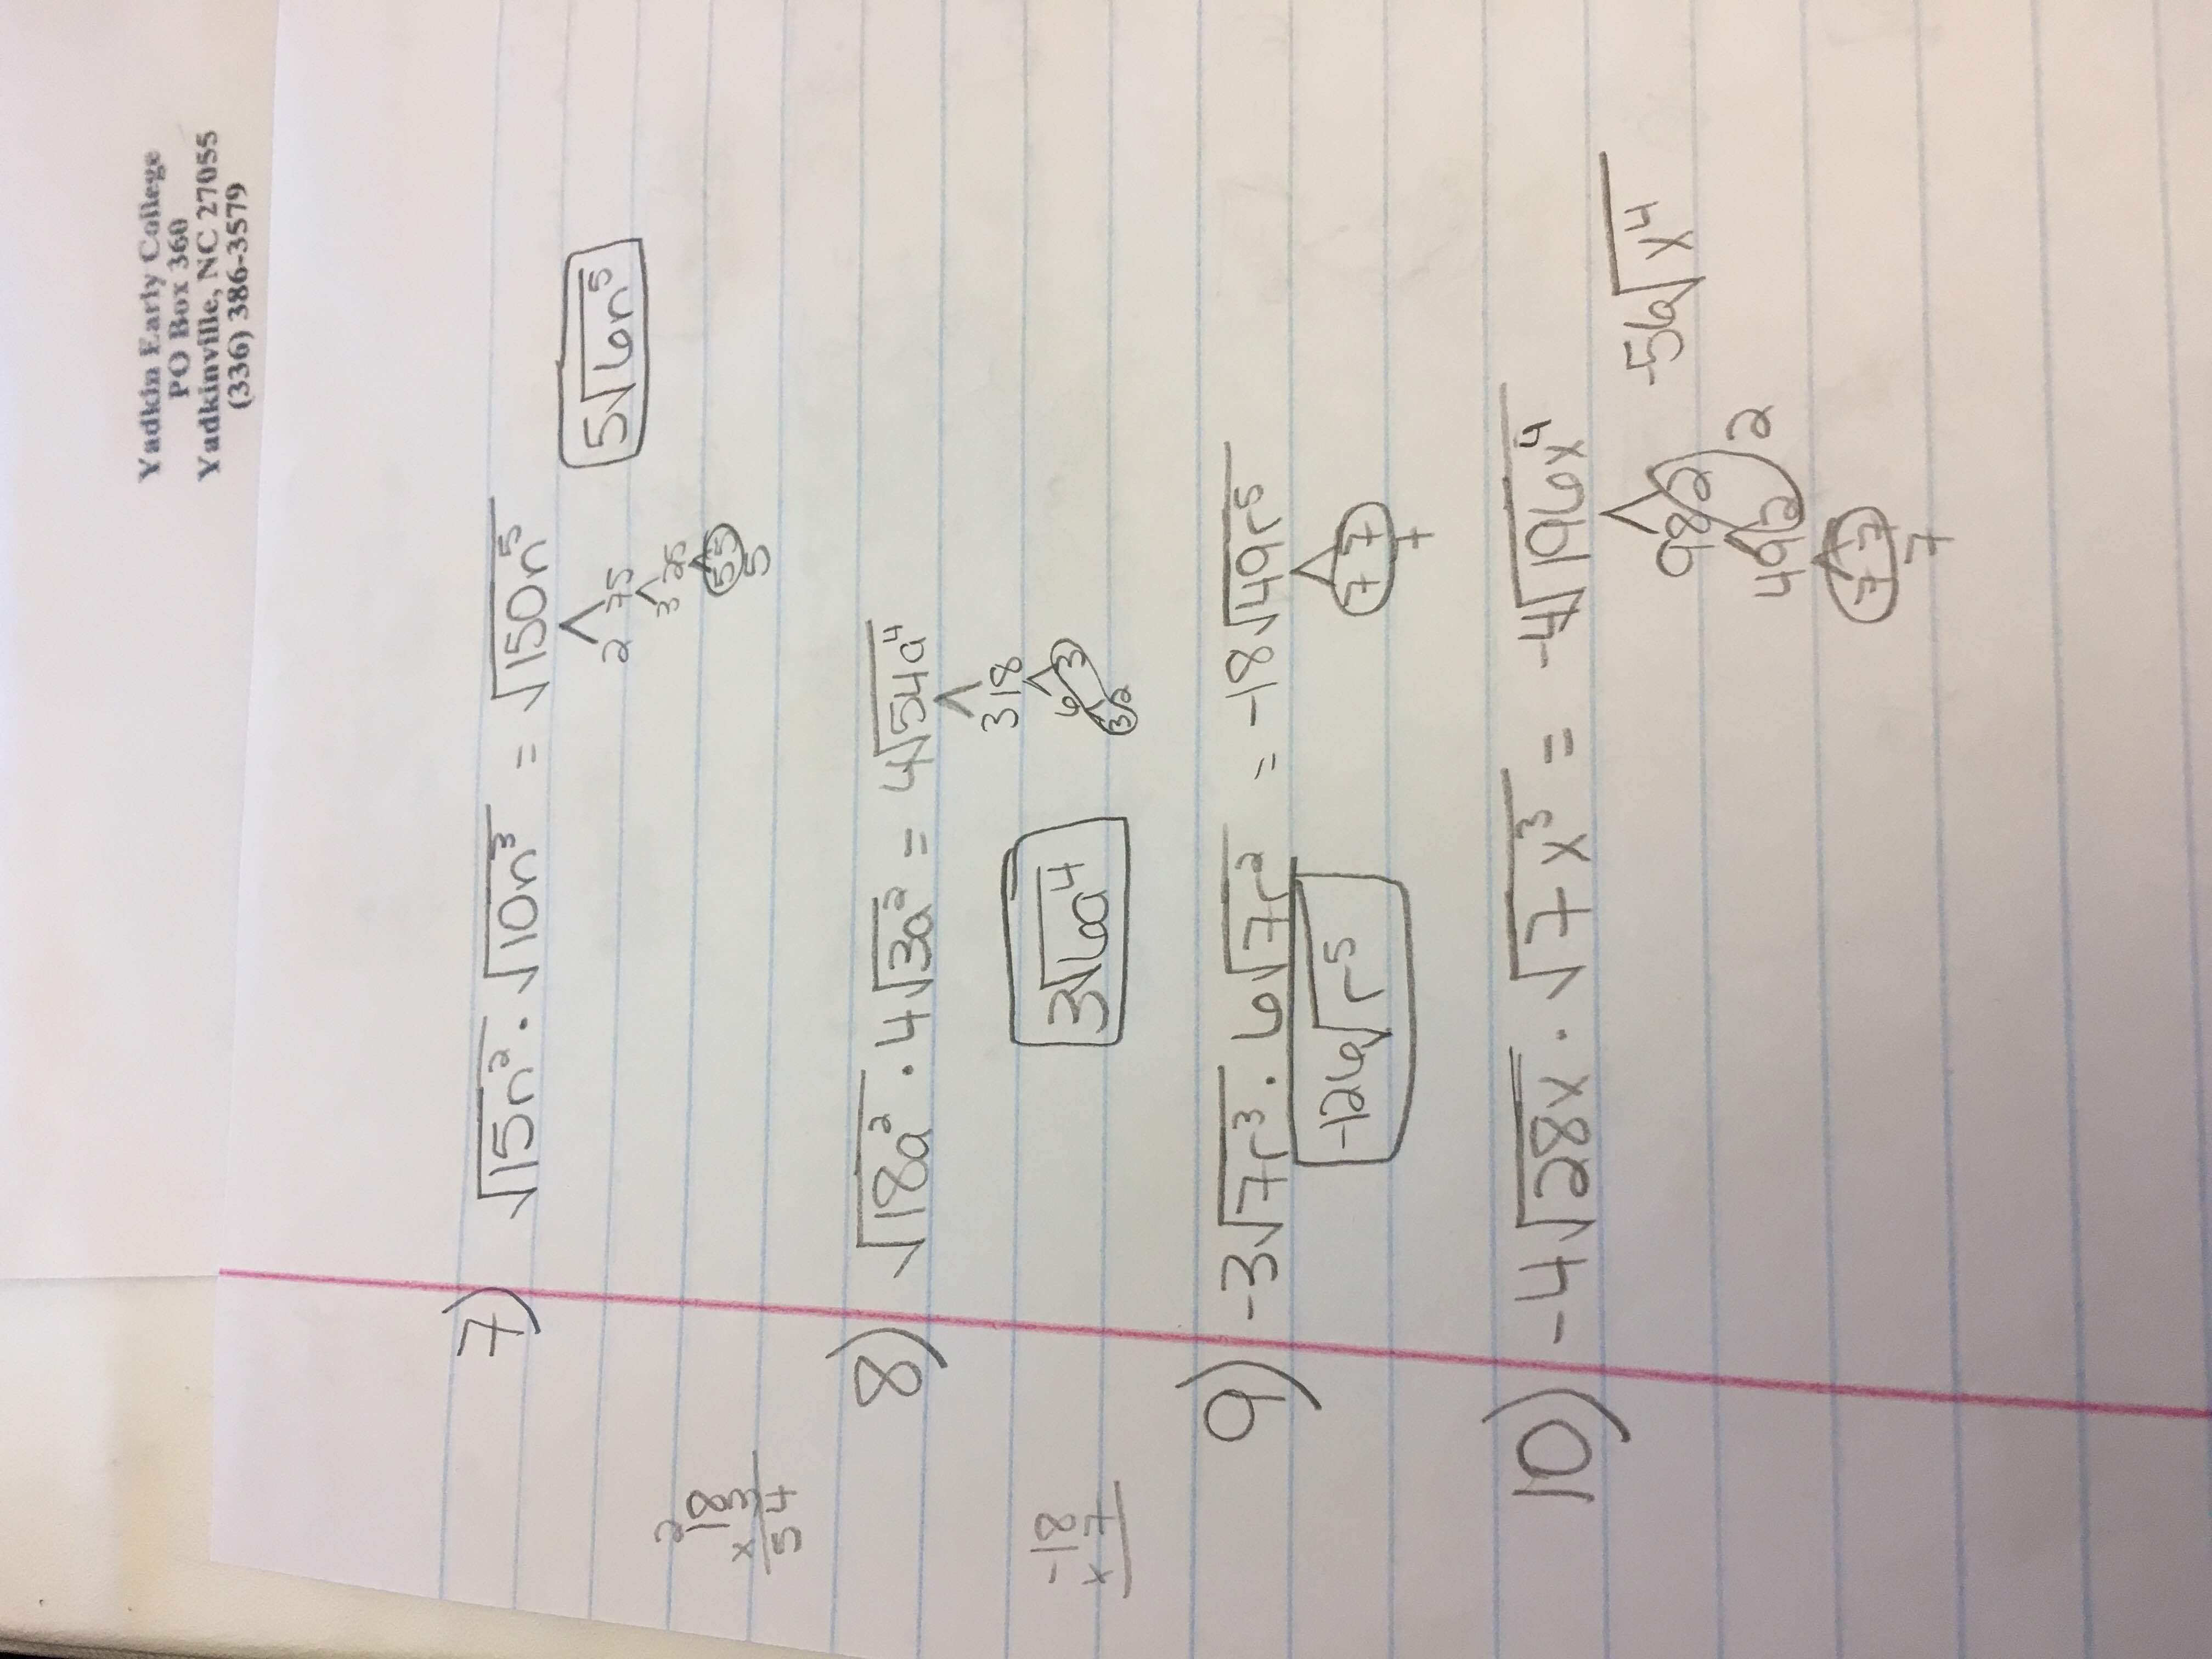 Yadkin Early College
PO Box 360
Yadkinville, NC 27055
(336) 386-3579
7) √15n² · √10n³ = √150n⁵
2 75
5√6n⁵
3 25
5 5
5
2
18
x 3
54
8) √18a² · 4√3a² = 4√54a⁴
3 18
6 3
3 2
3√6a⁴
-18
x 7
9) -3√7r³ · 6√7r² = -18√49r⁵
7 7
7
-126√r⁵
10) -4√28x · √7x³ = -4√196x⁴
-56√x⁴
98 2
49 2 2
7 7
7